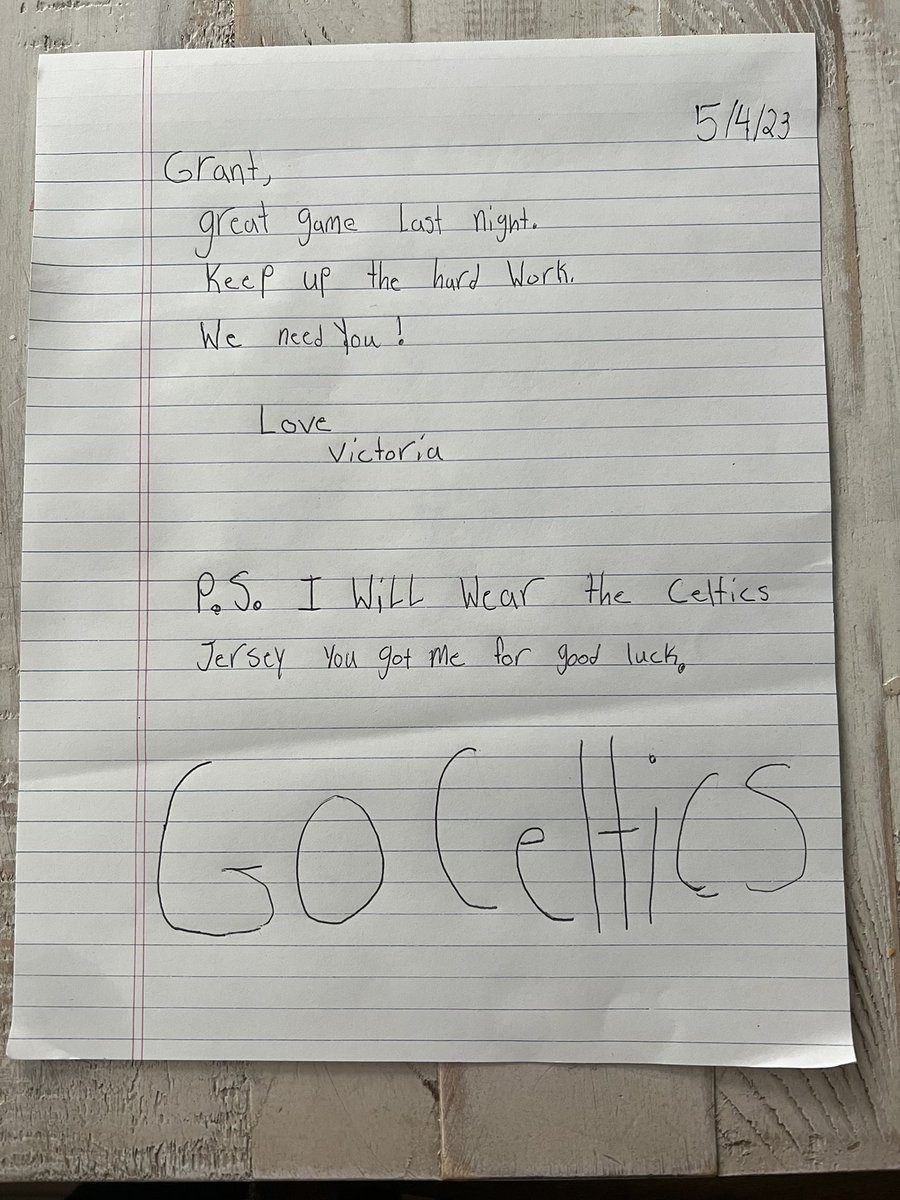 5/4/23
Grant,
great game Last night.
Keep up the hard Work.
We need You!
Love
Victoria
P.S. I Will Wear the Celtics
Jersey you got me for good luck.
Go Celtics